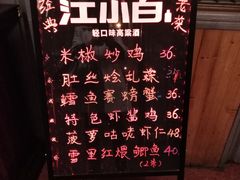 江小白
经典
老菜
轻口味高粱酒
米椒炒鸡 36.
肚丝烩乱炖 36.
鳕鱼赛螃蟹 36.
特色虾酱鸡 36.
菠萝咕咾虾仁 48.
雪里红煨鲫鱼 40.
(2条)